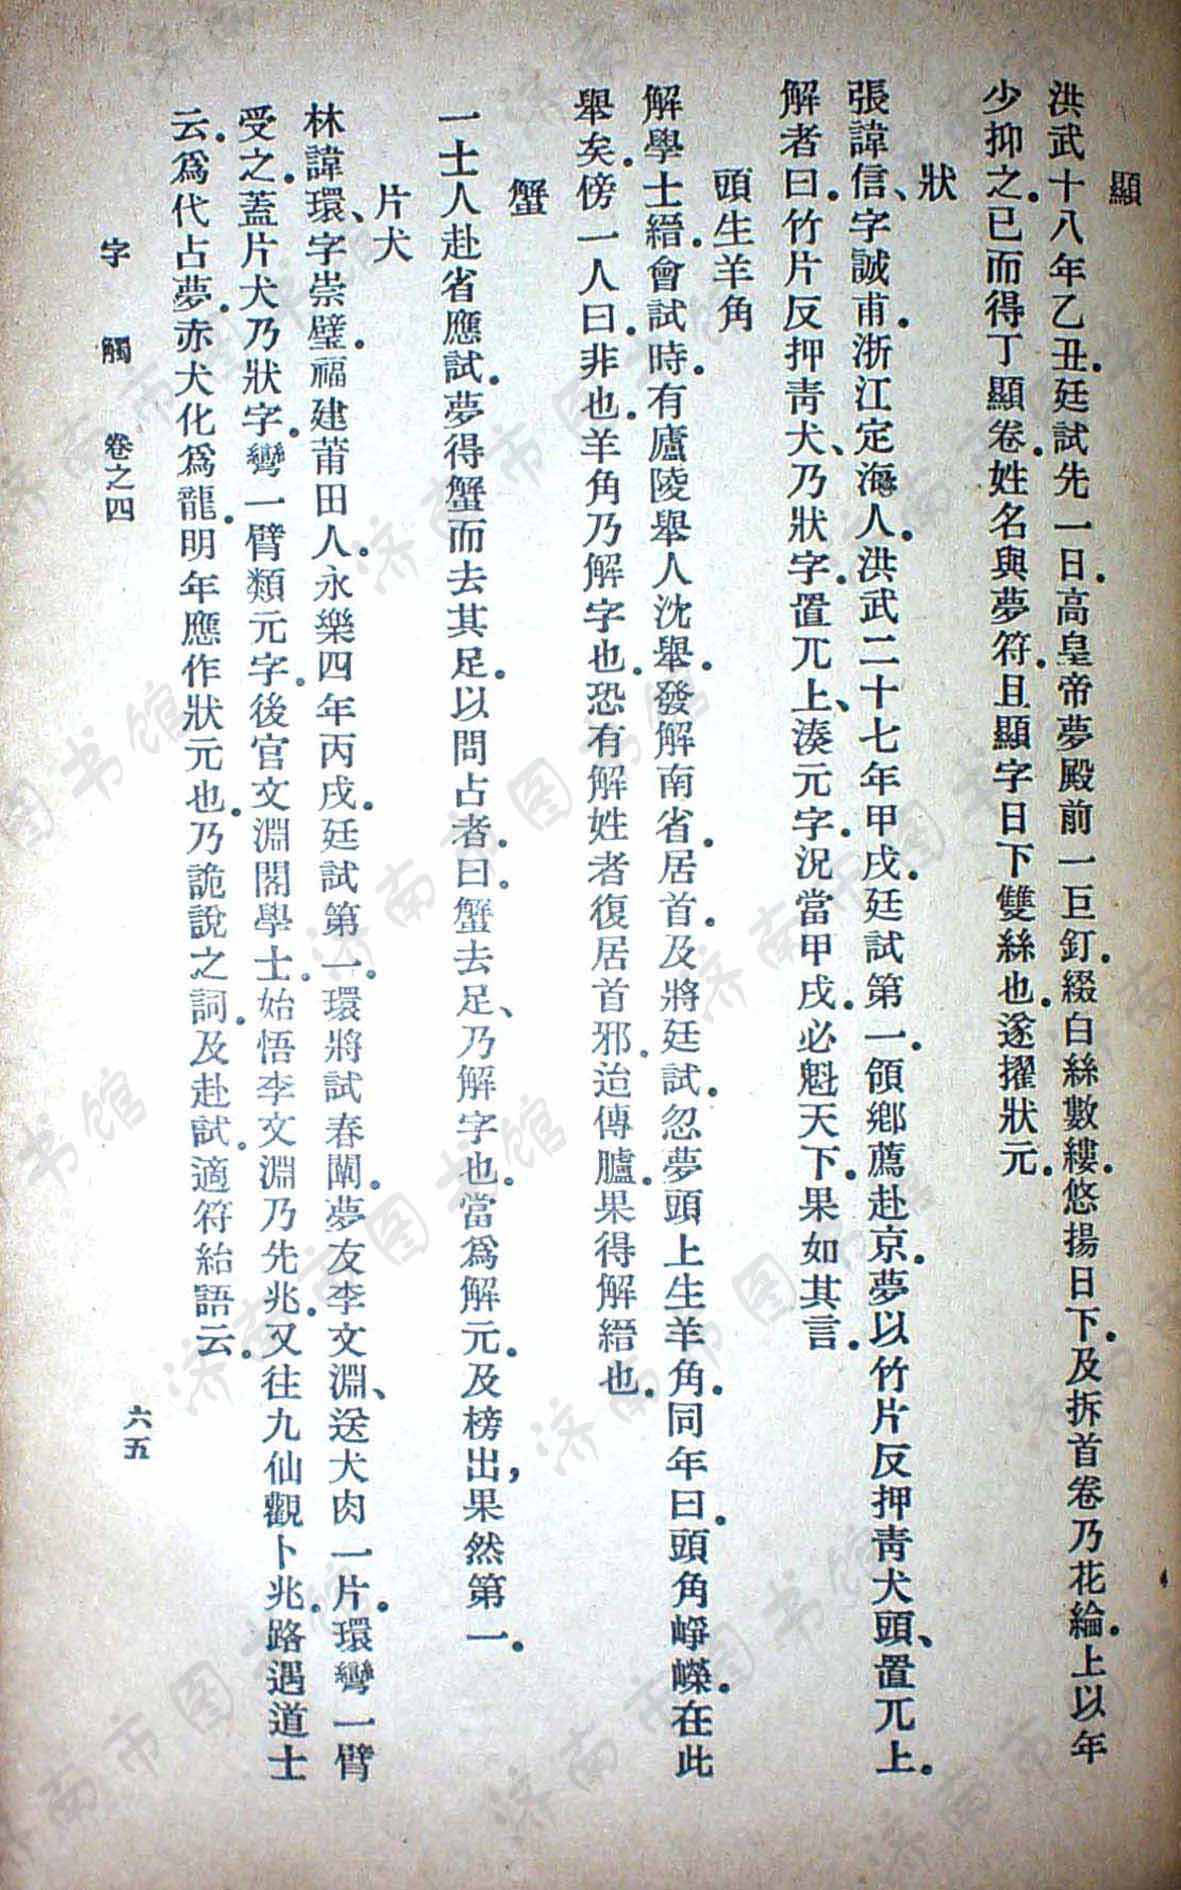 顯
洪武十八年乙丑。廷試先一日。高皇帝夢殿前一巨釘。綴白絲數縷。悠揚日下。及拆首卷乃花綸。上以年
少抑之。已而得丁顯卷。姓名與夢符。且顯字日下雙絲也。遂擢狀元。
狀
張諱信、字誠甫。浙江定海人。洪武二十七年甲戌。廷試第一。領鄉薦赴京。夢以竹片反押靑犬頭、置兀上。
解者曰。竹片反押靑犬、乃狀字。置兀上、湊元字。況當甲戌。必魁天下。果如其言。
頭生羊角
解學士縉。會試時。有廬陵舉人沈舉。發解南省。居首。及將廷試。忽夢頭上生羊角。同年曰。頭角崢嶸。在此
舉矣。傍一人曰。非也。羊角乃解字也。恐有解姓者復居首邪。迨傳臚。果得解縉也。
蟹
一士人赴省應試。夢得蟹而去其足。以問占者。曰。蟹去足、乃解字也。當爲解元。及榜出，果然第一。
片犬
林諱環、字崇璧。福建莆田人。永樂四年丙戌。廷試第一。環將試春闈。夢友李文淵、送犬肉一片。環彎一臂
受之。蓋片犬乃狀字。彎一臂類元字。後官文淵閣學士。始悟李文淵乃先兆。又往九仙觀卜兆。路遇道士
云。爲代占夢。赤犬化爲龍。明年應作狀元也。乃詭說之詞。及赴試。適符紿語云。
字觸 卷之四 六五
济南市图书馆